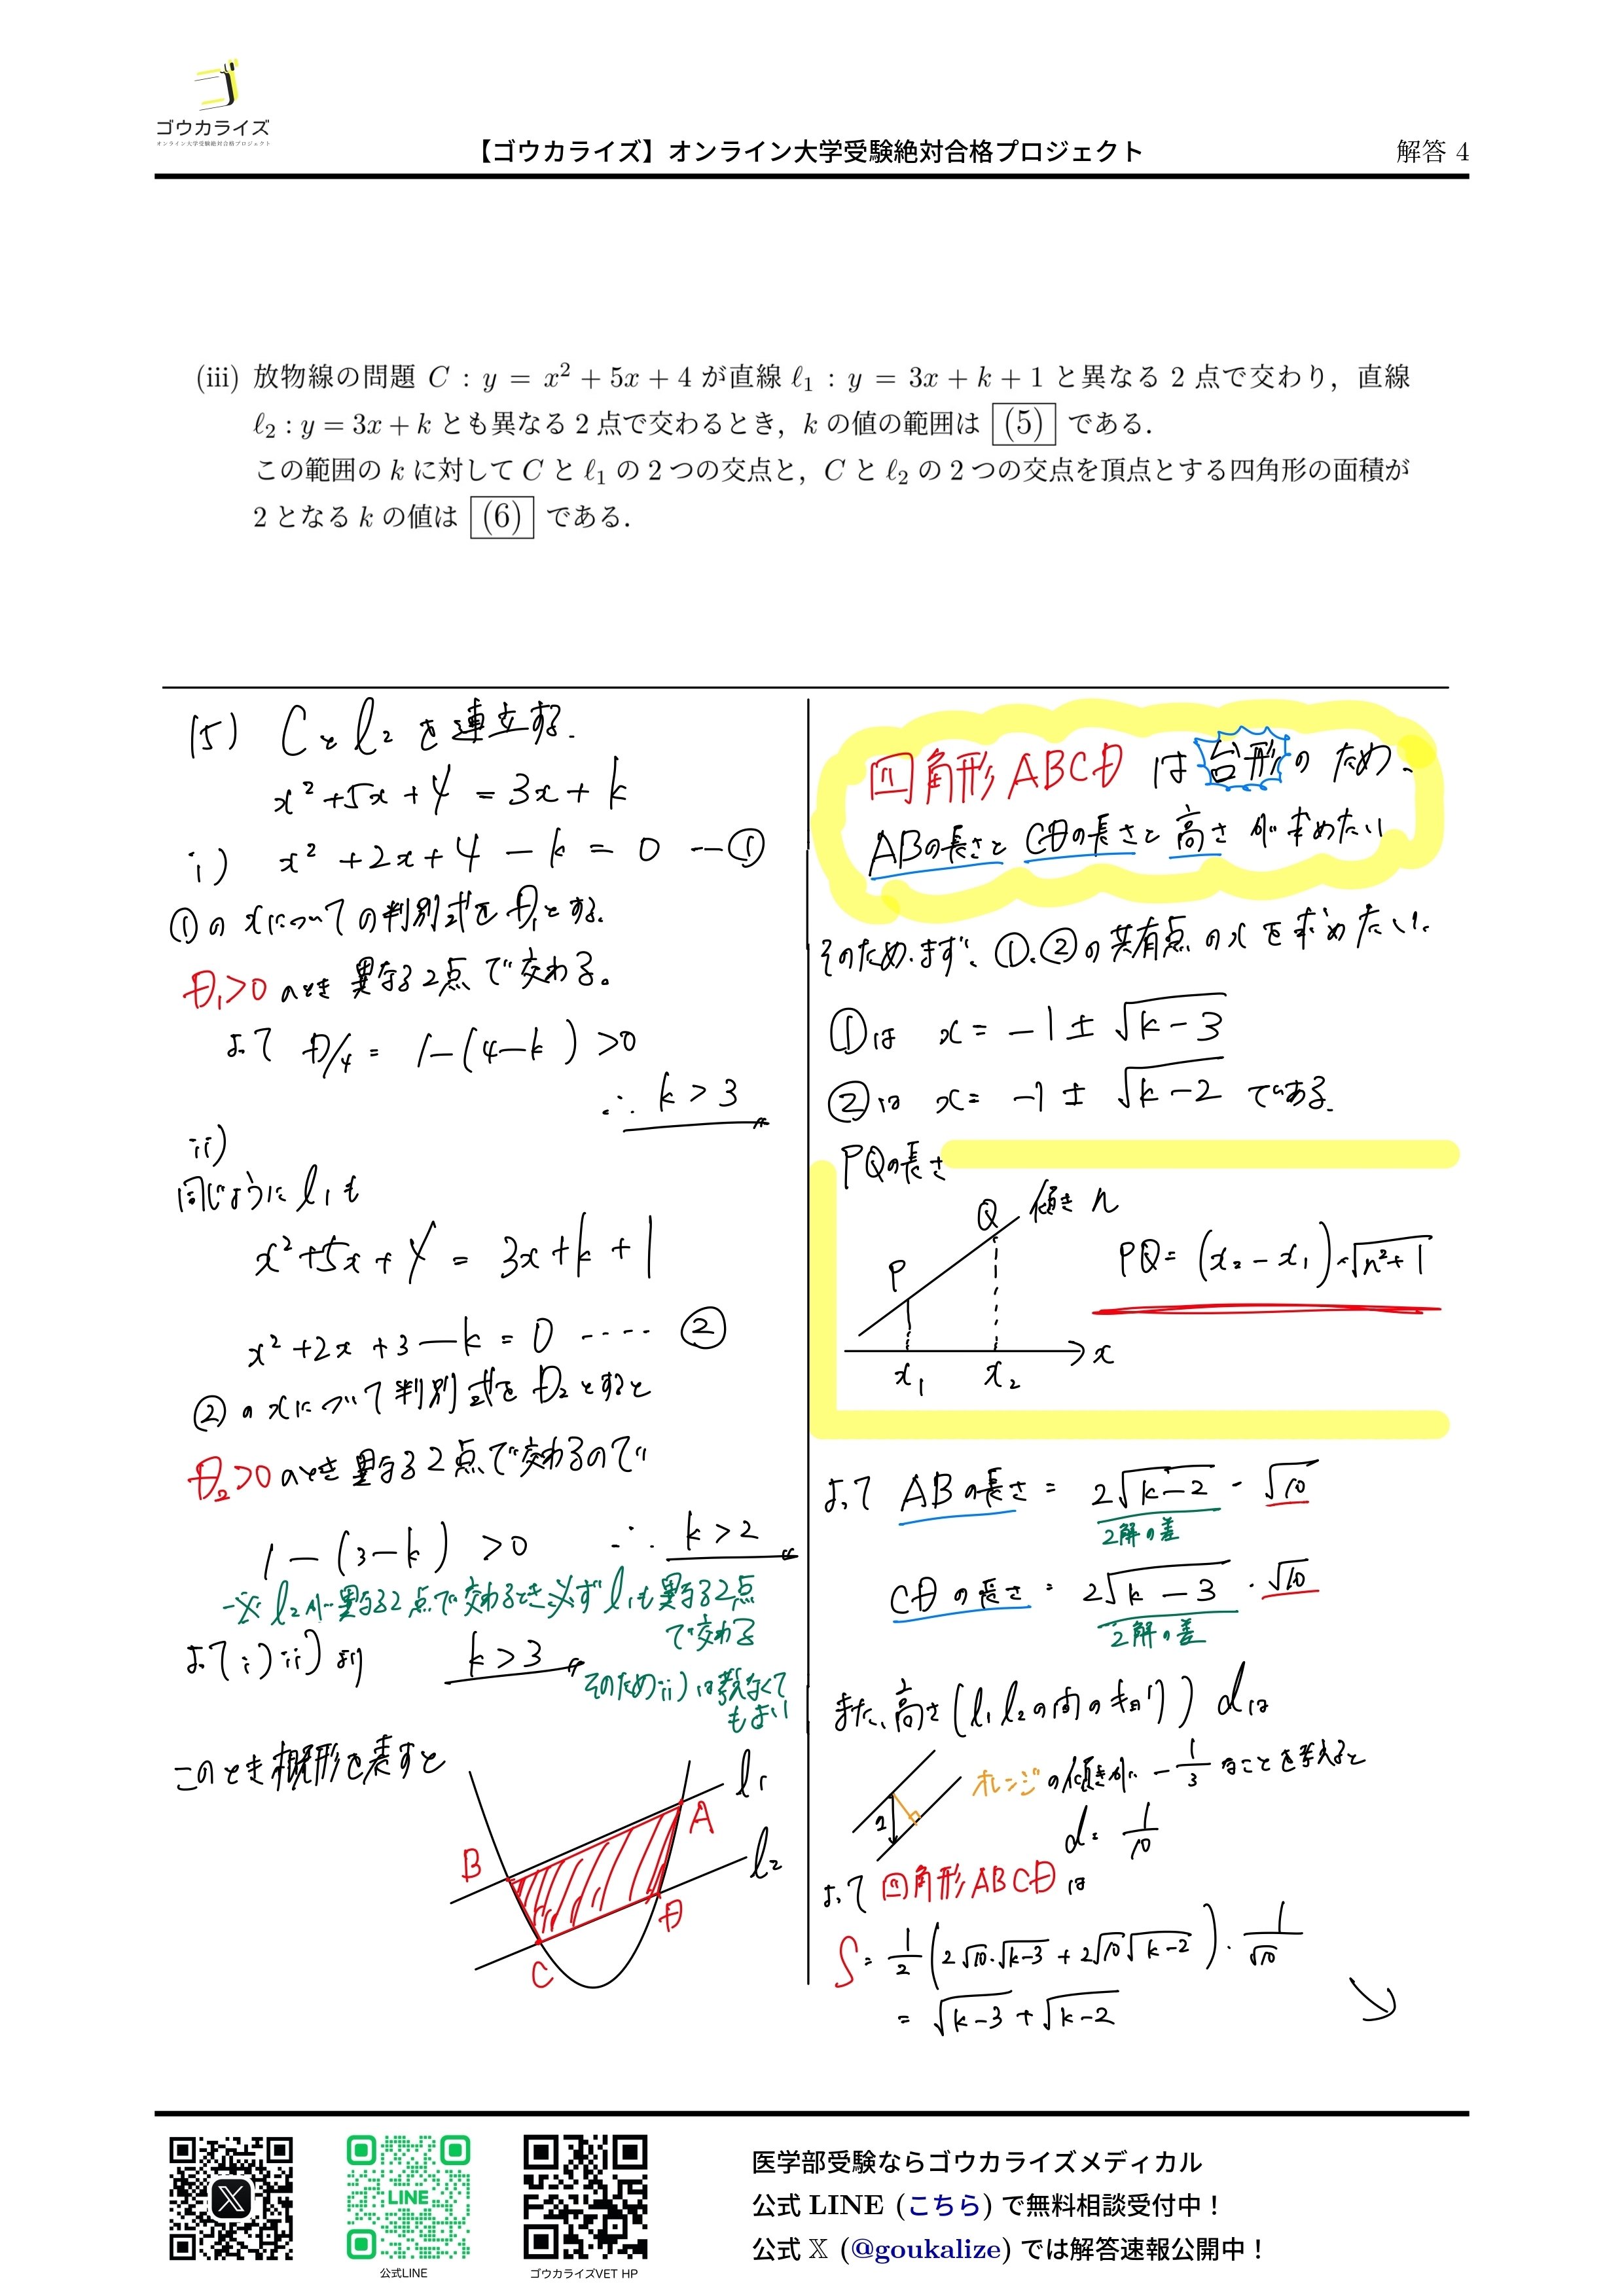 ゴウカライズ
オンライン大学受験絶対合格プロジェクト
【ゴウカライズ】オンライン大学受験絶対合格プロジェクト
解答 4
(iii) 放物線の問題 C : y = x² + 5x + 4 が直線 ℓ₁ : y = 3x + k + 1 と異なる 2 点で交わり，直線
ℓ₂ : y = 3x + k とも異なる 2 点で交わるとき，k の値の範囲は (5) である．
この範囲の k に対して C と ℓ₁ の 2 つの交点と，C と ℓ₂ の 2 つの交点を頂点とする四角形の面積が
2 となる k の値は (6) である．
(5) Cとl₂を連立する.
x²+5x+4 = 3x+k
i) x²+2x+4-k = 0 --①
①のxについての判別式をD₁とする.
D₁>0 のとき 異なる2点で交わる。
よって D/4 = 1-(4-k) >0
∴ k > 3
ii)
同じようにl₁も
x²+5x+4 = 3x+k+1
x²+2x+3-k = 0 ---- ②
②のxについて判別式をD₂とすると
D₂>0 のとき異なる2点で交わるので
1-(3-k) >0 ∴ k > 2
※ l₂が異なる2点で交わるとき必ずl₁も異なる2点
で交わる
よって i) ii) より k > 3
そのためii)は考えなくて
もよい
このとき概形を表すと
l₁
A
B
l₂
D
C
四角形ABCD は台形のため、
ABの長さとCDの長さと高さが求めたい
そのため、まず、①、②の共有点のxを求めたい.
①は x = -1 ± √k-3
②は x = -1 ± √k-2 である.
PQの長さ
Q 傾き n
P
PQ = (x₂-x₁)・√n²+1
x
x₁ x₂
よって ABの長さ = 2√k-2・√10
2解の差
CDの長さ = 2√k-3・√10
2解の差
また、高さ(l₁l₂の間のキョリ) dは
オレンジの傾きが -1/3 なことを考えると
2
d = 1/10
よって 四角形ABCDは
S = 1/2 (2√10・√k-3 + 2√10√k-2)・1/√10
= √k-3 + √k-2
LINE
公式LINE
ゴウカライズVET HP
医学部受験ならゴウカライズメディカル
公式 LINE (こちら) で無料相談受付中！
公式 𝕏 (@goukalize) では解答速報公開中！